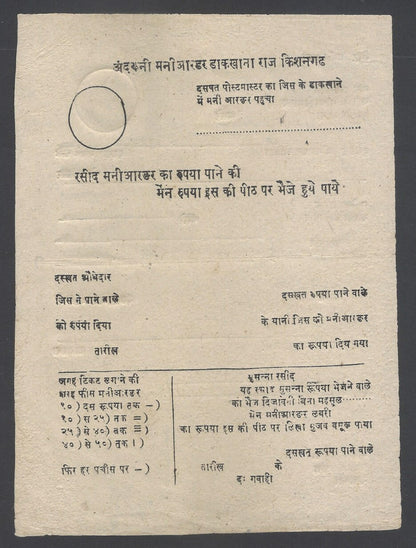 अंदरूनी मनीआरडर डाकखाना राज किशनगढ
दसखत पोस्टमास्टर का जिस के डाकखाने
में मनी आरडर पहुचा
रसीद मनीआरडर का रुपया पाने की
मैंन रुपया इस की पीठ पर भेजे हुये पाये
दस्खत औमेदार
जिस ने पाने वाले
को रुपया दिया
तारीख
दसखत रुपया पाने वाले
के यानी जिस को मनीआरडर
का रूपया दिया गया
जगह टिकट लगाने की
बाबद फीस मनीआरडर
१०) दस रूपया तक -)
१०) से २५) तक =)
२५) से ४०) तक ≡)
४०) से ५०) तक ।)
फिर हर पचीस पर -)
मुसन्ना रसीद
यह रसीद मुसन्ना रूपैया भेजने वाले
को भेज दिजावेगी बिना महसूल
मेंन मनीआरडर नंबरी
का रूपया इस की पीठ पर लिखा मुजब वसूल पाया
दसखत रूपया पाने वाले
तारीख के
दः गवाही